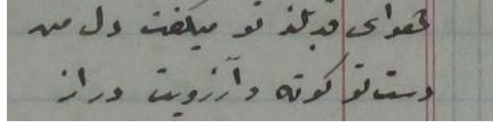 بهوای قد بلند تو میگفت دل من
دست تو کوته و آرزویت دراز